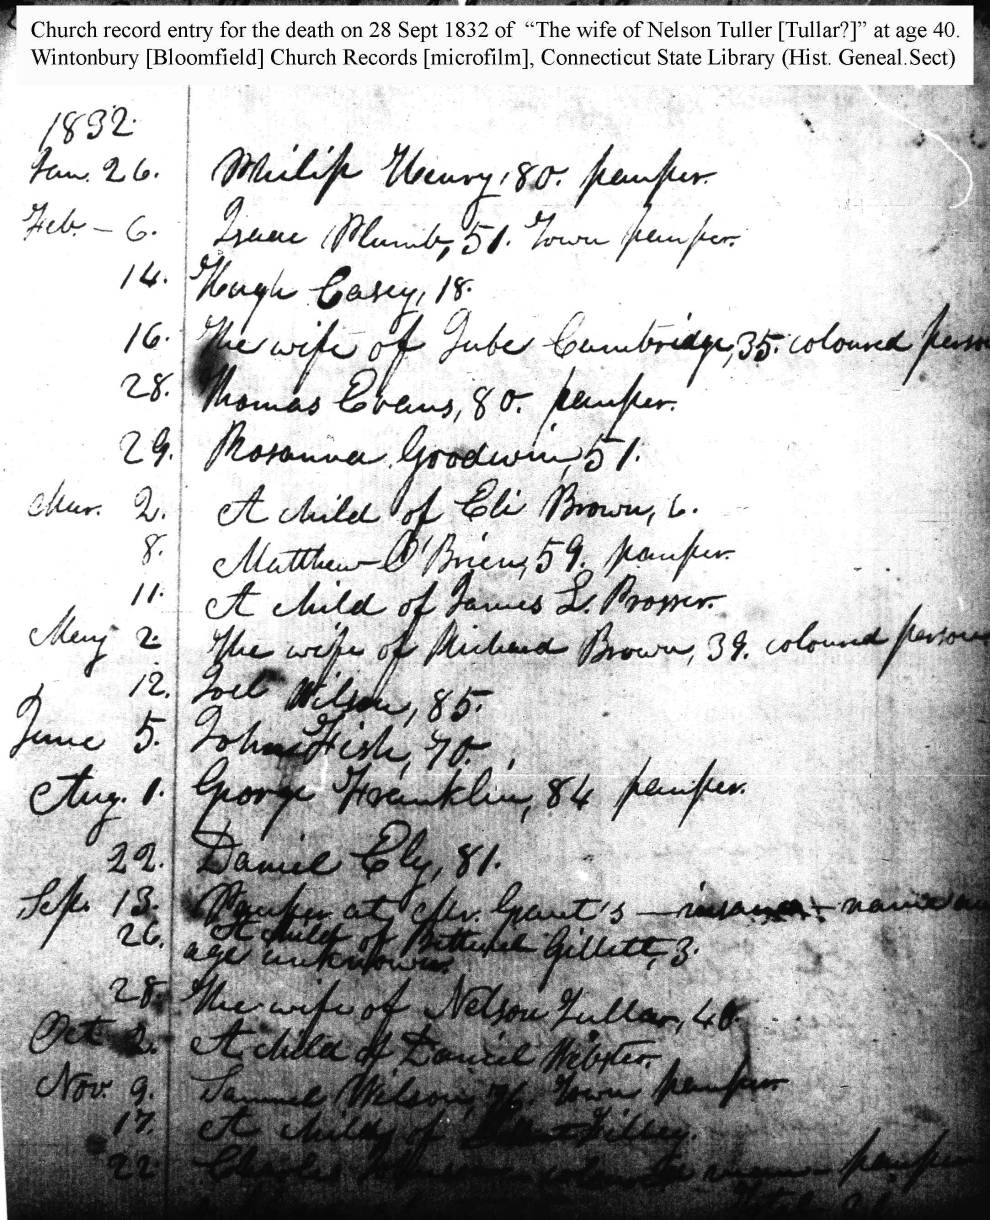 Church record entry for the death on 28 Sept 1832 of “The wife of Nelson Tuller [Tullar?]” at age 40.
Wintonbury [Bloomfield] Church Records [microfilm], Connecticut State Library (Hist. Geneal.Sect)
1832.
Jan. 26. Philip Henry, 80. pauper.
Feb. – 6. Isaac Plumb, 51. Town pauper.
14. Hugh Casey, 18.
16. The wife of Jube Cambridge, 35. coloured person
28. Thomas Evans, 80. pauper.
29. Rosanna Goodwin, 51.
Mar. 2. A child of Eli Brown, 6.
8. Matthew O'Brien, 59. pauper.
11. A child of James L. Prosser.
May 2. The wife of Richard Brown, 39. coloured person
12. Joel Wilson, 85.
June 5. John Fish, 70.
Aug. 1. George Franklin, 84 pauper.
22. Daniel Ely, 81.
Sep. 13. Pauper at Mr. Grant's – insane – name
26. A child of Gillett, 3.
age unknown.
28. The wife of Nelson Tullar, 40.
Oct 2. A child of Daniel Webster.
Nov. 9. Samuel Wilson, Town pauper
17. A child of Filley.
22. Charles pauper